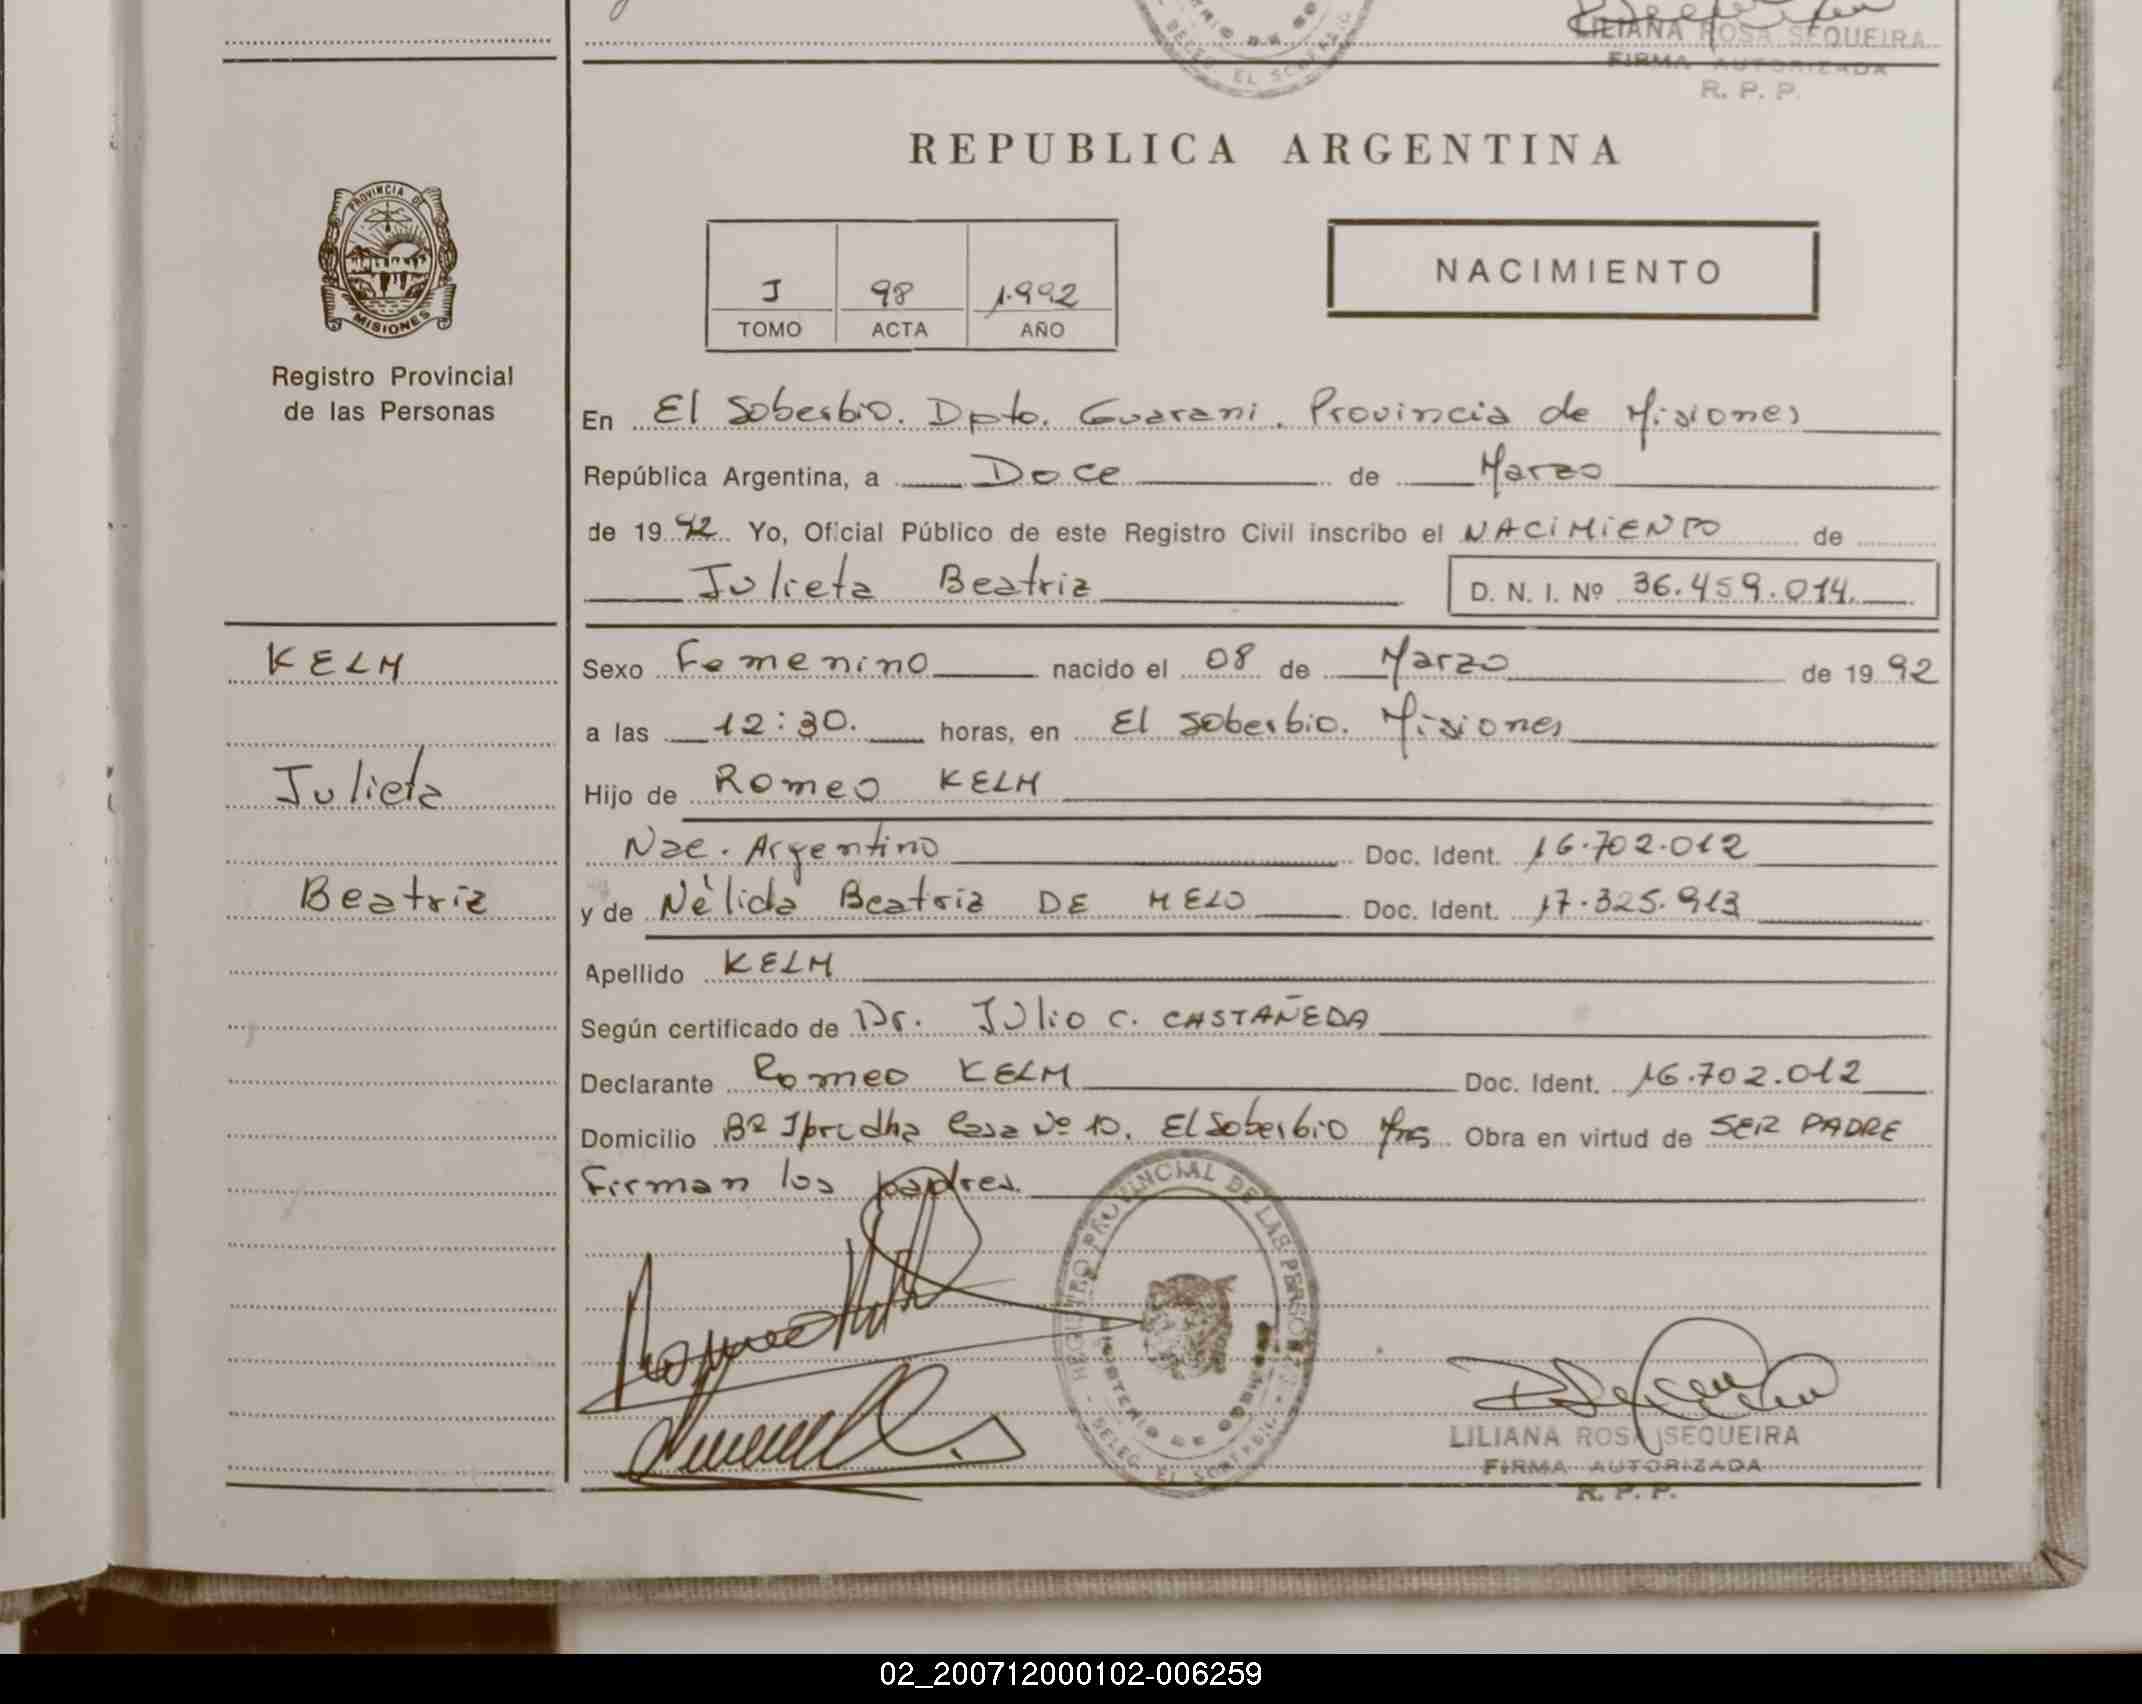 LILIANA ROSA SEQUEIRA
FIRMA AUTORIZADA
R. P. P.
REPUBLICA ARGENTINA
PROVINCIA DE
MISIONES
Registro Provincial
de las Personas
J 98 1.992
TOMO ACTA AÑO
NACIMIENTO
En El Soberbio. Dpto. Guarani. Provincia de Misiones
República Argentina, a Doce de Marzo
de 1992. Yo, Oficial Público de este Registro Civil inscribo el NACIMIENTO de
Julieta Beatriz D. N. I. Nº 36.459.014.
KELM
Julieta
Beatriz
Sexo Femenino nacido el 08 de Marzo de 1992
a las 12:30. horas, en El Soberbio. Misiones
Hijo de Romeo KELM
Nac. Argentino Doc. Ident. 16.702.012
y de Nèlida Beatriz DE MELO Doc. Ident. 17.325.913
Apellido KELM
Según certificado de Dr. Julio C. CASTAÑEDA
Declarante Romeo KELM Doc. Ident. 16.702.012
Domicilio Bº Casa Nº 10. El Soberbio Mns Obra en virtud de SER PADRE
Firman los padres.
REGISTRO PROVINCIAL DE LAS PERSONAS
MINISTERIO DE GOBIERNO
DELEG. EL SOBERBIO
LILIANA ROSA SEQUEIRA
FIRMA AUTORIZADA
R. P. P.
02_200712000102-006259